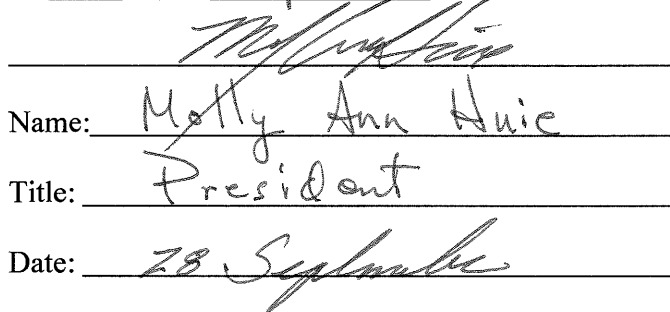 Name: Molly Ann Huie
Title: President
Date: 28 September